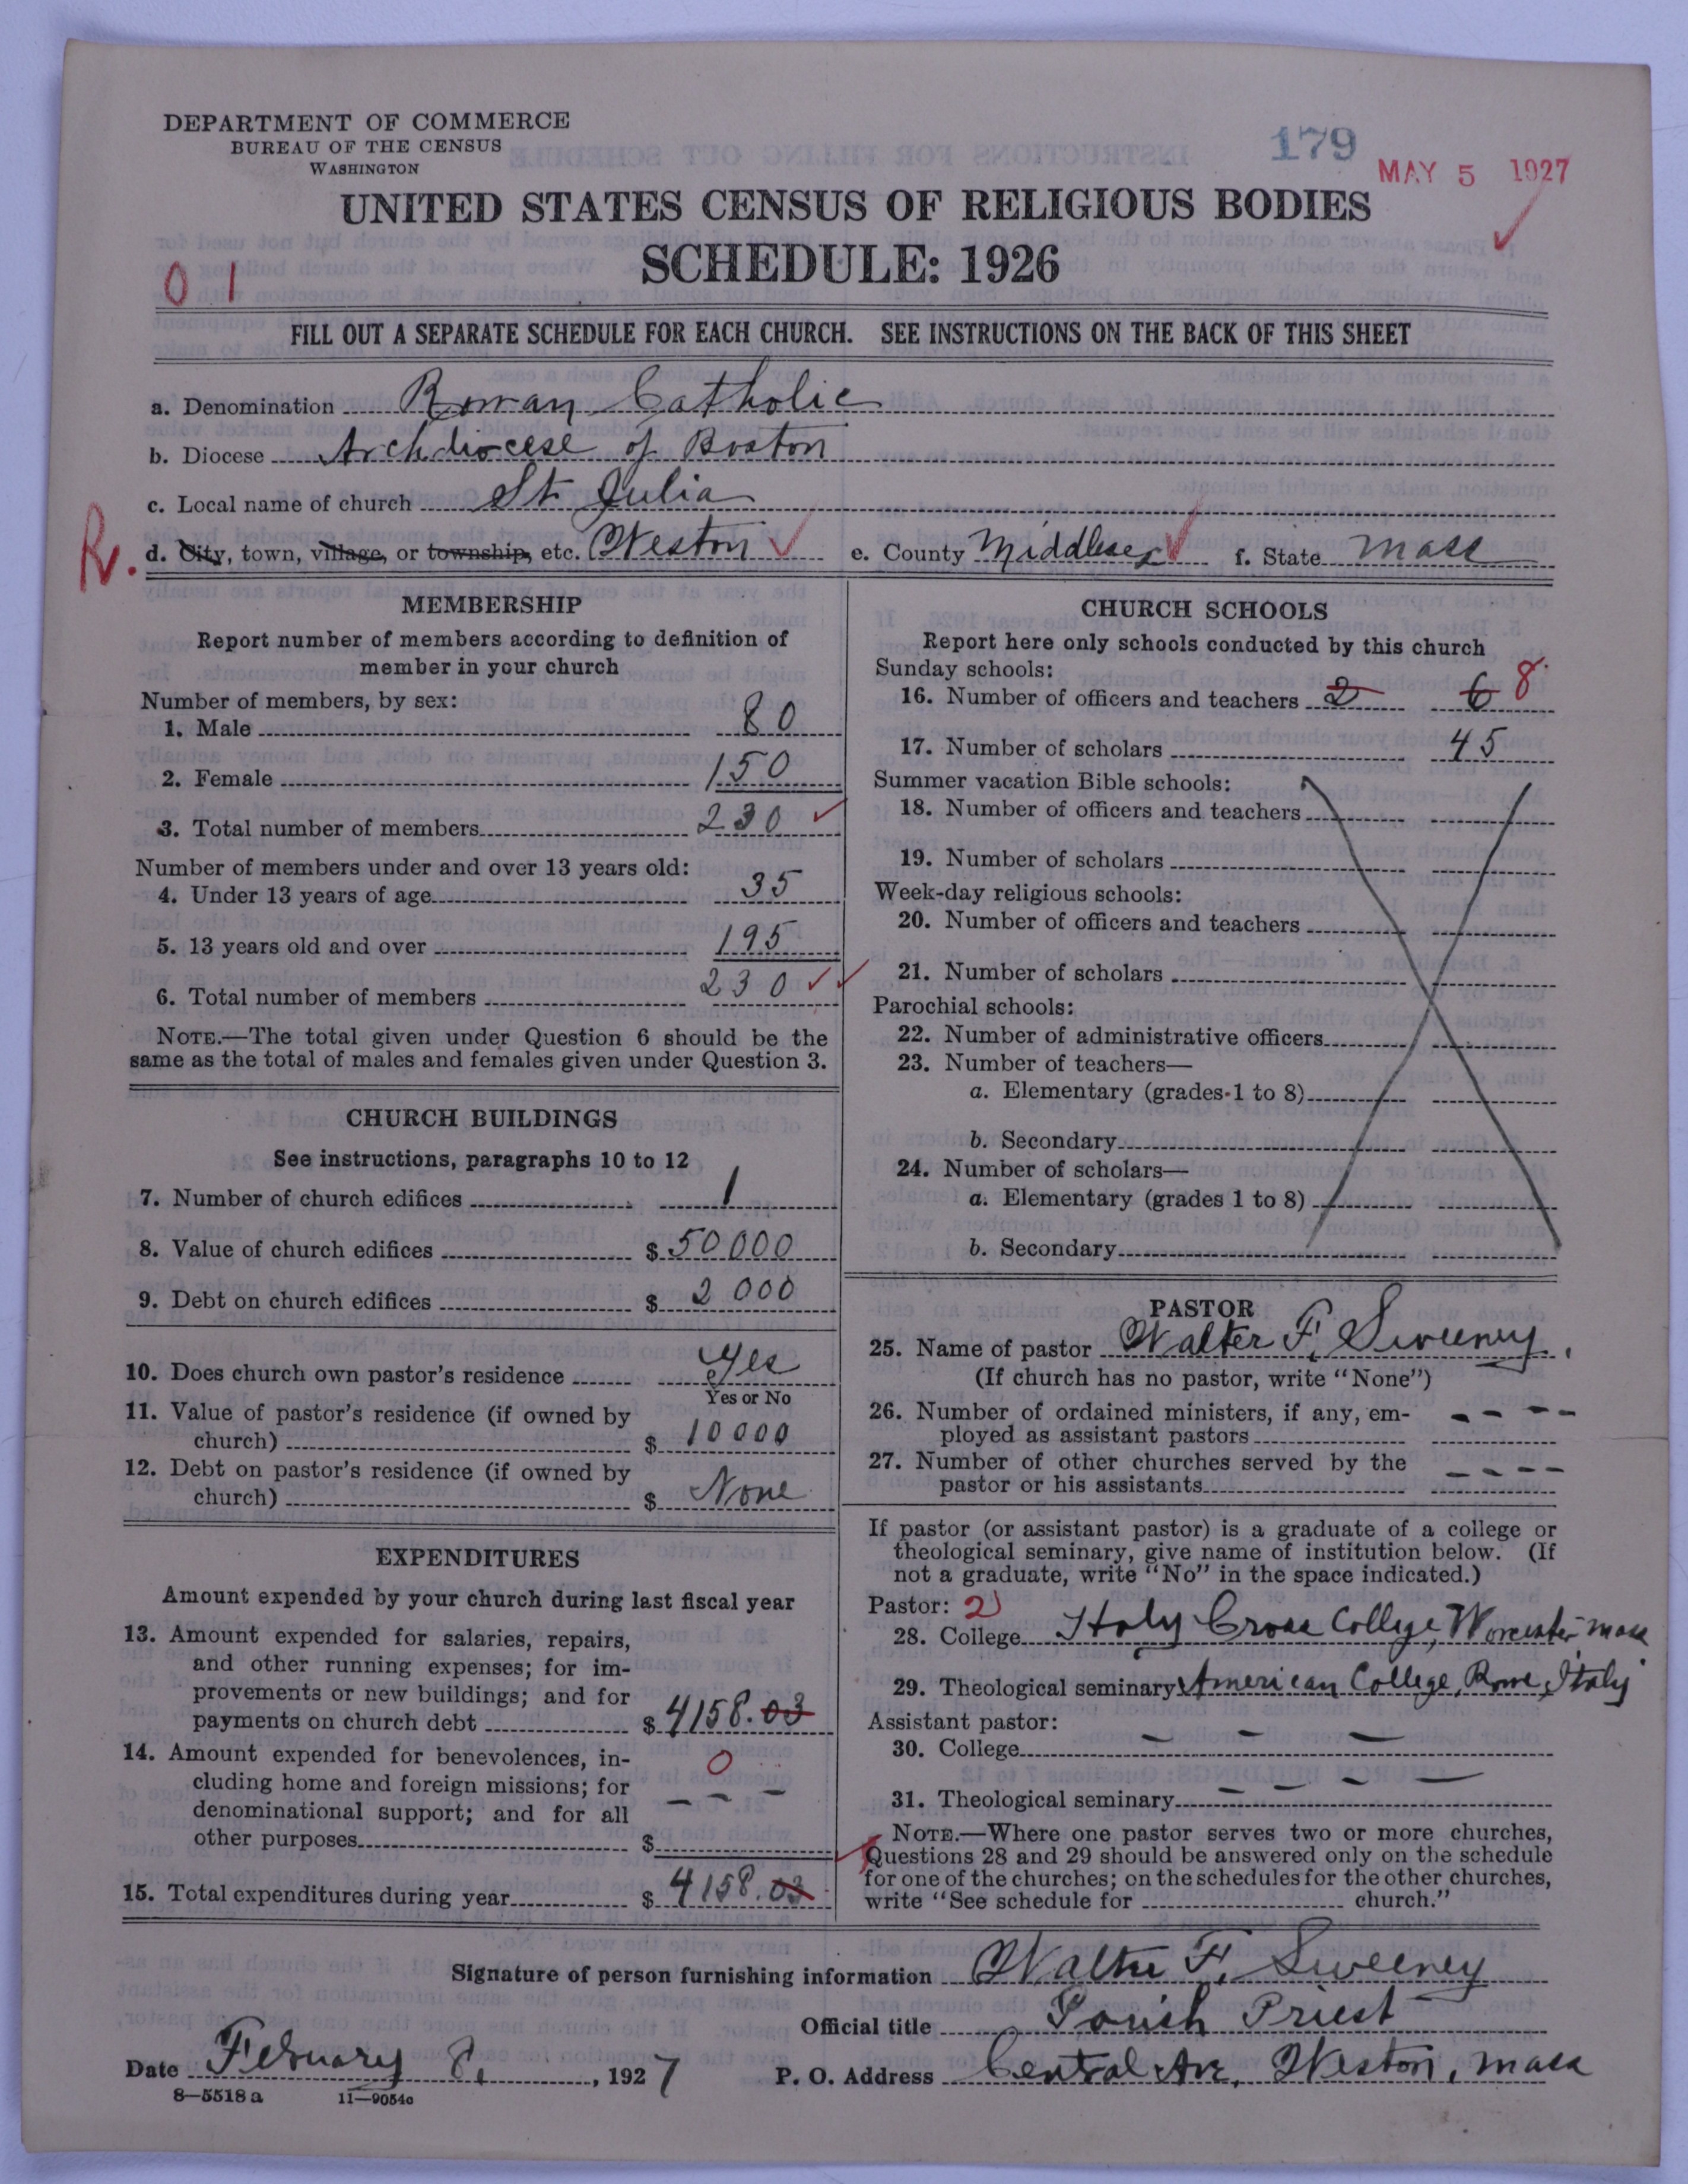 DEPARTMENT OF COMMERCE
BUREAU OF THE CENSUS
WASHINGTON
179
MAY 5 1927
UNITED STATES CENSUS OF RELIGIOUS BODIES
SCHEDULE: 1926
01
FILL OUT A SEPARATE SCHEDULE FOR EACH CHURCH. SEE INSTRUCTIONS ON THE BACK OF THIS SHEET
a. Denomination Roman Catholic
b. Diocese Archdiocese of Boston
c. Local name of church St Julia
R.
d. City, town, village, or township, etc. Weston e. County Middlesex f. State Mass
MEMBERSHIP
Report number of members according to definition of
member in your church
Number of members, by sex:
1. Male 80
2. Female 150
3. Total number of members 230
Number of members under and over 13 years old:
4. Under 13 years of age 35
5. 13 years old and over 195
6. Total number of members 230
NOTE.—The total given under Question 6 should be the
same as the total of males and females given under Question 3.
CHURCH BUILDINGS
See instructions, paragraphs 10 to 12
7. Number of church edifices 1
8. Value of church edifices $ 50000
9. Debt on church edifices $ 2000
10. Does church own pastor's residence Yes
Yes or No
11. Value of pastor's residence (if owned by
church) $ 10000
12. Debt on pastor's residence (if owned by
church) $ None
EXPENDITURES
Amount expended by your church during last fiscal year
13. Amount expended for salaries, repairs,
and other running expenses; for im-
provements or new buildings; and for
payments on church debt $ 4158.03
14. Amount expended for benevolences, in-
cluding home and foreign missions; for
denominational support; and for all
other purposes $ 0 - - -
15. Total expenditures during year $ 4158.03
CHURCH SCHOOLS
Report here only schools conducted by this church
Sunday schools:
16. Number of officers and teachers 2 6 8
17. Number of scholars 45
Summer vacation Bible schools:
18. Number of officers and teachers
19. Number of scholars
Week-day religious schools:
20. Number of officers and teachers
21. Number of scholars
Parochial schools:
22. Number of administrative officers
23. Number of teachers—
a. Elementary (grades 1 to 8)
b. Secondary
24. Number of scholars—
a. Elementary (grades 1 to 8)
b. Secondary
PASTOR
25. Name of pastor Walter F. Sweeney.
(If church has no pastor, write "None")
26. Number of ordained ministers, if any, em-
ployed as assistant pastors - - - -
27. Number of other churches served by the
pastor or his assistants - - - -
If pastor (or assistant pastor) is a graduate of a college or
theological seminary, give name of institution below. (If
not a graduate, write "No" in the space indicated.)
Pastor: 2
28. College Holy Cross College, Worcester Mass
29. Theological seminary American College, Rome, Italy
Assistant pastor:
30. College - - -
31. Theological seminary - - - -
NOTE.—Where one pastor serves two or more churches,
Questions 28 and 29 should be answered only on the schedule
for one of the churches; on the schedules for the other churches,
write "See schedule for church."
Signature of person furnishing information Walter F. Sweeney
Official title Parish Priest
Date February 8, 1927 P. O. Address Central Ave, Weston, Mass
8—5518 a 11—9054c